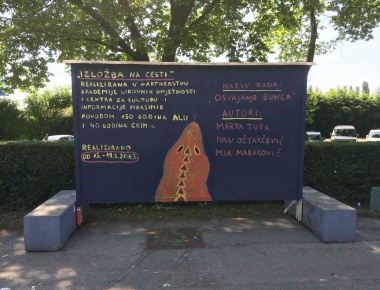 „IZLOŽBA NA CESTI"
REALIZIRANA U PARTNERSTVU
AKADEMIJE LIKOVNIH UMJETNOSTI
I CENTRA ZA KULTURU I
INFORMACIJE MAKSIMIR
POVODOM 150 GODINA ALU
I 40 GODINA CKIM-a
REALIZIRANO
OD 15.-19.5.2017.
NAZIV RADA:
„OSVAJANJE SUNCA"
AUTORI:
MARTA TUTA
IVAN OŠTARČEVIĆ
MIA MARAKOVIĆ